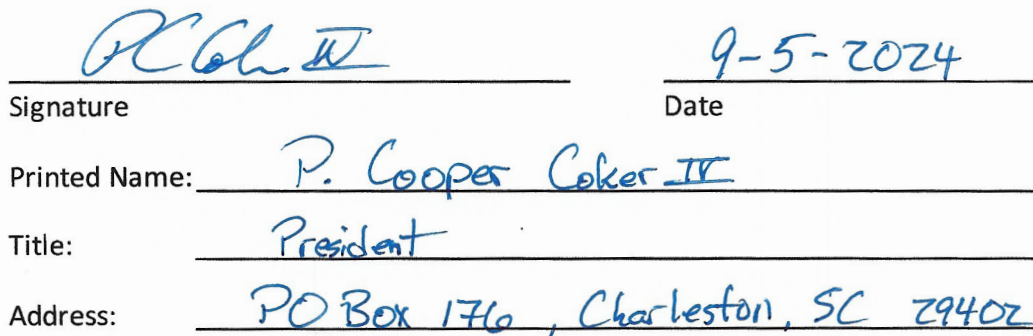 PC Coker IV 9-5-2024
Signature Date
Printed Name: P. Cooper Coker IV
Title: President
Address: PO Box 176, Charleston, SC 29402